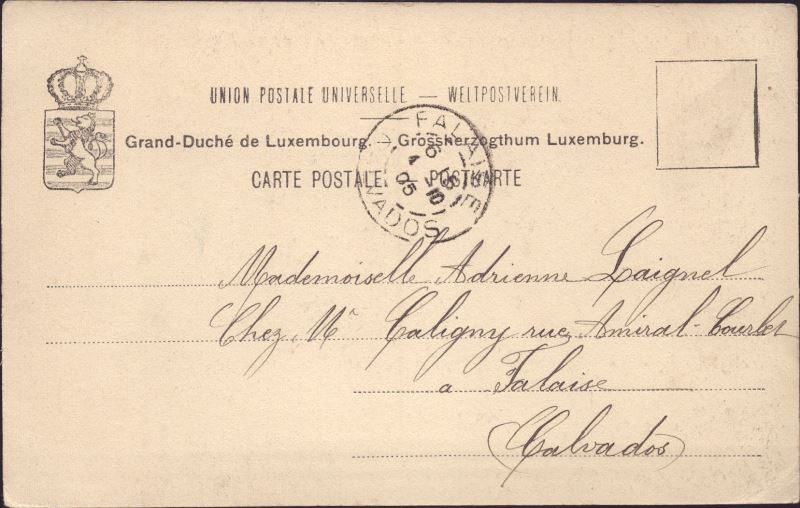 UNION POSTALE UNIVERSELLE — WELTPOSTVEREIN.
Grand-Duché de Luxembourg. — Grossherzogthum Luxemburg.
CARTE POSTALE. POSTKARTE
FALAISE
CALVADOS
Mademoiselle Adrienne Laignel
Chez Mr Caligny rue Amiral-Courbet
a Falaise
(Calvados)